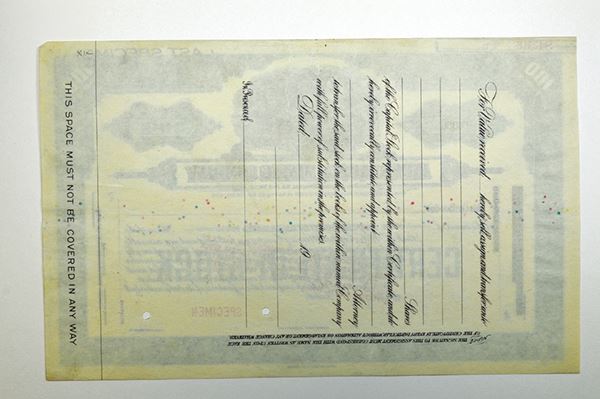 For Value received hereby sell, assign and transfer unto
Shares
of the Capital Stock represented by the within Certificate and do
hereby irrevocably constitute and appoint
Attorney
to transfer the said stock on the books of the within named Company
with full power of substitution in the premises.
Dated 19
In Presence of
THIS SPACE MUST NOT BE COVERED IN ANY WAY
THE SIGNATURE TO THIS ASSIGNMENT MUST CORRESPOND WITH THE NAME AS WRITTEN UPON THE FACE
OF THE CERTIFICATE IN EVERY PARTICULAR, WITHOUT ALTERATION OR ENLARGEMENT OR ANY CHANGE WHATEVER.
SPECIMEN